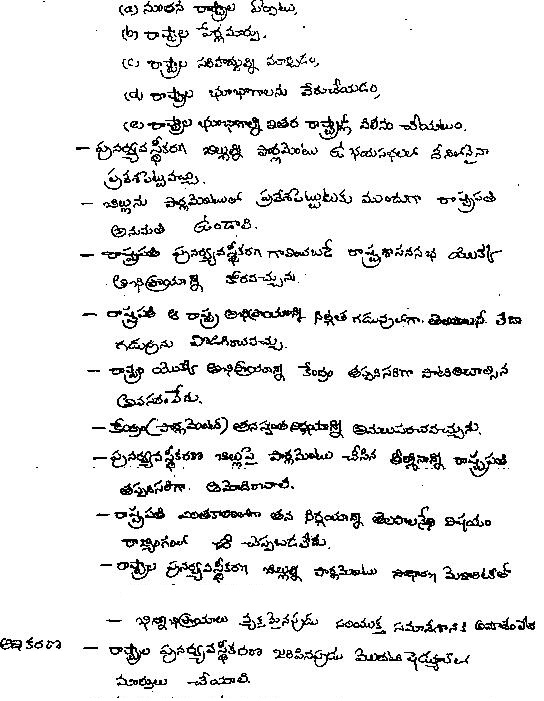 (a) నూతన రాష్ట్రాల ఏర్పాటు,
(b) రాష్ట్రాల పేర్ల మార్పు,
(c) రాష్ట్రాల సరిహద్దుల్ని మార్చడం,
(d) రాష్ట్రాల భూభాగాలను వేరుచేయడం,
(e) రాష్ట్రాల భూభాగాల్ని ఇతర రాష్ట్రాల్లో విలీనం చేయటం.
- పునర్వ్యవస్థీకరణ బిల్లుల్ని పార్లమెంటు ఉభయసభలలో దేనిలోనైనా
ప్రవేశపెట్టవచ్చు.
- బిల్లును పార్లమెంటులో ప్రవేశపెట్టుటకు ముందుగా రాష్ట్రపతి
అనుమతి ఉండాలి.
- రాష్ట్రపతి పునర్వ్యవస్థీకరణ గావించబడే రాష్ట్రశాసనసభ యొక్క
అభిప్రాయాన్ని కోరవచ్చును.
- రాష్ట్రపతి ఆ రాష్ట్ర అభిప్రాయాన్ని నిర్ణీత గడువులోగా తెలపాలని లేదా
గడువును పొడిగించవచ్చు.
- రాష్ట్రాల యొక్క అభిప్రాయాన్ని కేంద్రం తప్పనిసరిగా పాటించాల్సిన
అవసరం లేదు.
- కేంద్రం (పార్లమెంట్) తన స్వంత నిర్ణయాన్ని అమలుపరచవచ్చును.
- పునర్వ్యవస్థీకరణ బిల్లుపై పార్లమెంటు చేసిన తీర్మానాన్ని రాష్ట్రపతి
తప్పనిసరిగా ఆమోదించాలి.
- రాష్ట్రపతి ఎంతకాలంలోగా తన నిర్ణయాన్ని తెలపాలనే విషయం
రాజ్యాంగంలో చెప్పబడలేదు.
- రాష్ట్రాల పునర్వ్యవస్థీకరణ బిల్లుల్ని పార్లమెంటు సాధారణ మెజారిటీతో
- భిన్నాభిప్రాయాలు వ్యక్తమైనపుడు సంయుక్త సమావేశానికి అవకాశం లేదు
అధికరణ - రాష్ట్రాల పునర్వ్యవస్థీకరణ జరిపినపుడు మొదటి షెడ్యూలులో
మార్పులు చేయాలి.